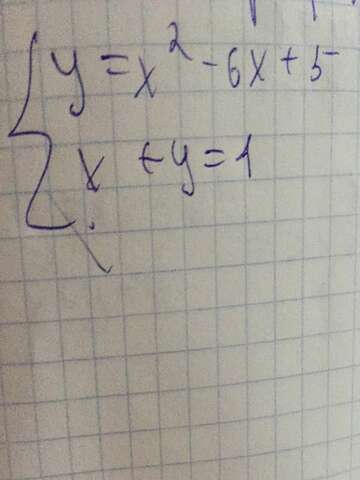 y = x² - 6x + 5
x + y = 1